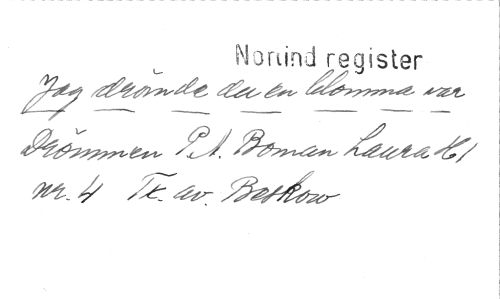 Norlind register
Jag drömde du en blomma var
Drömmen P.A. Boman Laura H/
nr. 4 Tx. av. Beskow